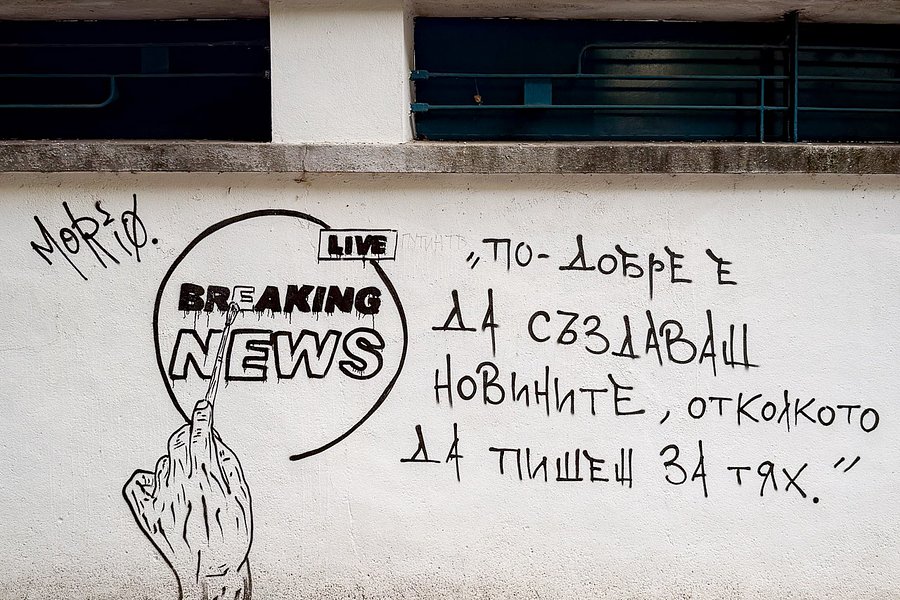 MORIO.
LIVE
BREAKING
NEWS
„ПО-ДОБРЕ Е
ДА СЪЗДАВАШ
НОВИНИТЕ, ОТКОЛКОТО
ДА ПИШЕШ ЗА ТЯХ."